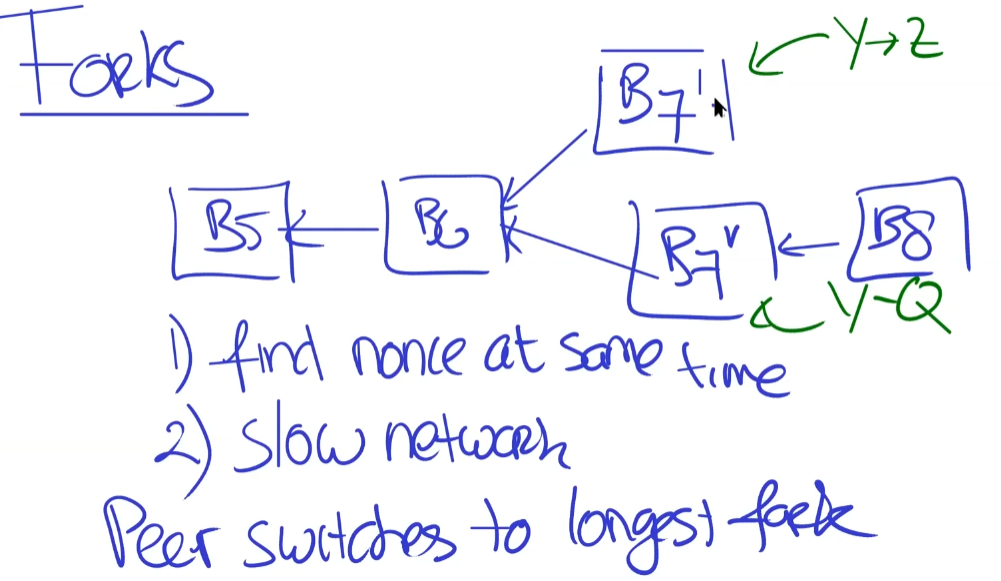 Forks
B7' Y→Z
B5 B6 B7" B8
Y-Q
1) find nonce at same time
2) slow network
Peer switches to longest fork